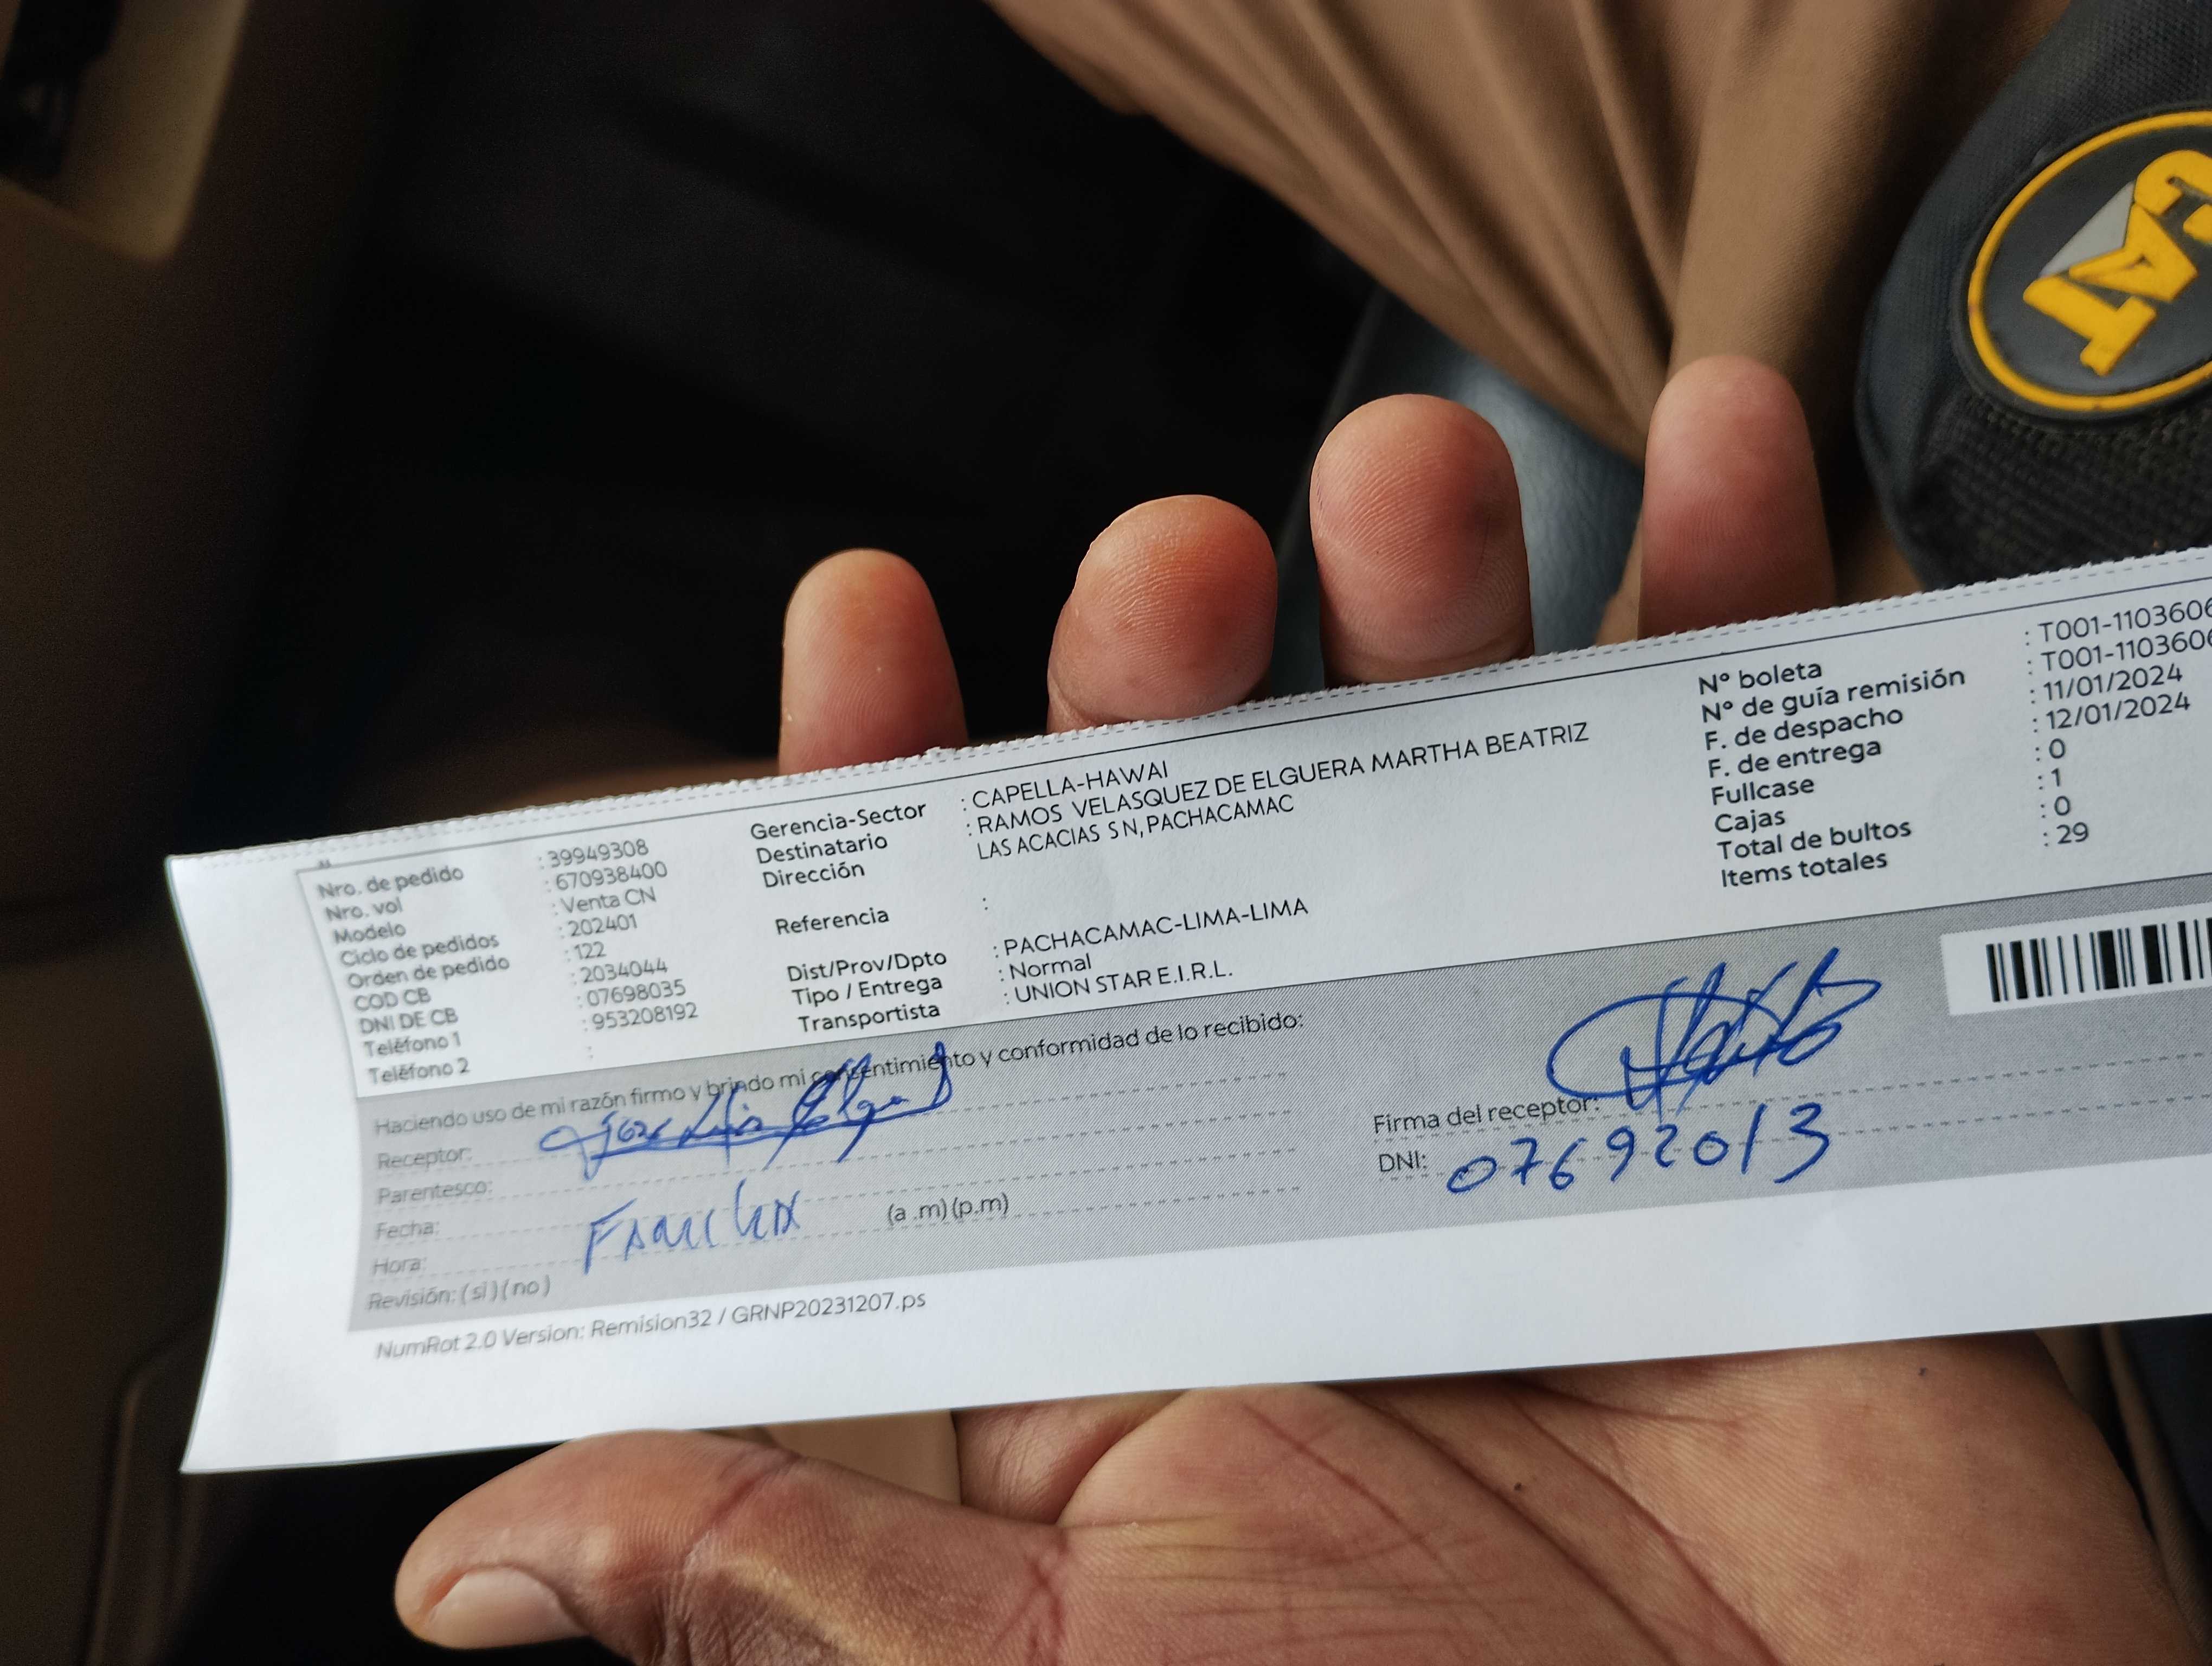 CAT
Nro. de pedido : 39949308
Nro. vol : 670938400
Modelo : Venta CN
Ciclo de pedidos : 202401
Orden de pedido : 122
COD CB : 2034044
DNI DE CB : 07698035
Teléfono 1 : 953208192
Teléfono 2 :
Gerencia-Sector : CAPELLA-HAWAI
Destinatario : RAMOS VELASQUEZ DE ELGUERA MARTHA BEATRIZ
Dirección LAS ACACIAS S N, PACHACAMAC
Referencia :
Dist/Prov/Dpto : PACHACAMAC-LIMA-LIMA
Tipo / Entrega : Normal
Transportista : UNION STAR E.I.R.L.
Nº boleta : T001-1103606
Nº de guía remisión : T001-1103606
F. de despacho : 11/01/2024
F. de entrega : 12/01/2024
Fullcase : 0
Cajas : 1
Total de bultos : 0
Items totales : 29
Haciendo uso de mi razón firmo y brindo mi consentimiento y conformidad de lo recibido:
Receptor:
Parentesco:
Fecha:
Hora: (a .m) (p.m)
Revisión: ( si ) ( no )
Firma del receptor:
DNI: 07692013
NumRot 2.0 Version: Remision32 / GRNP20231207.ps